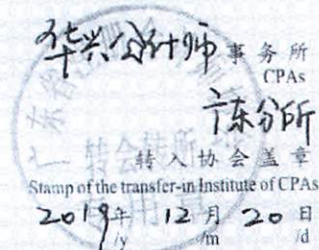 华兴会计师事务所
CPAs
广东分所
转入协会盖章
Stamp of the transfer-in Institute of CPAs
2019年 12月 20日
/y /m /d
转会转所